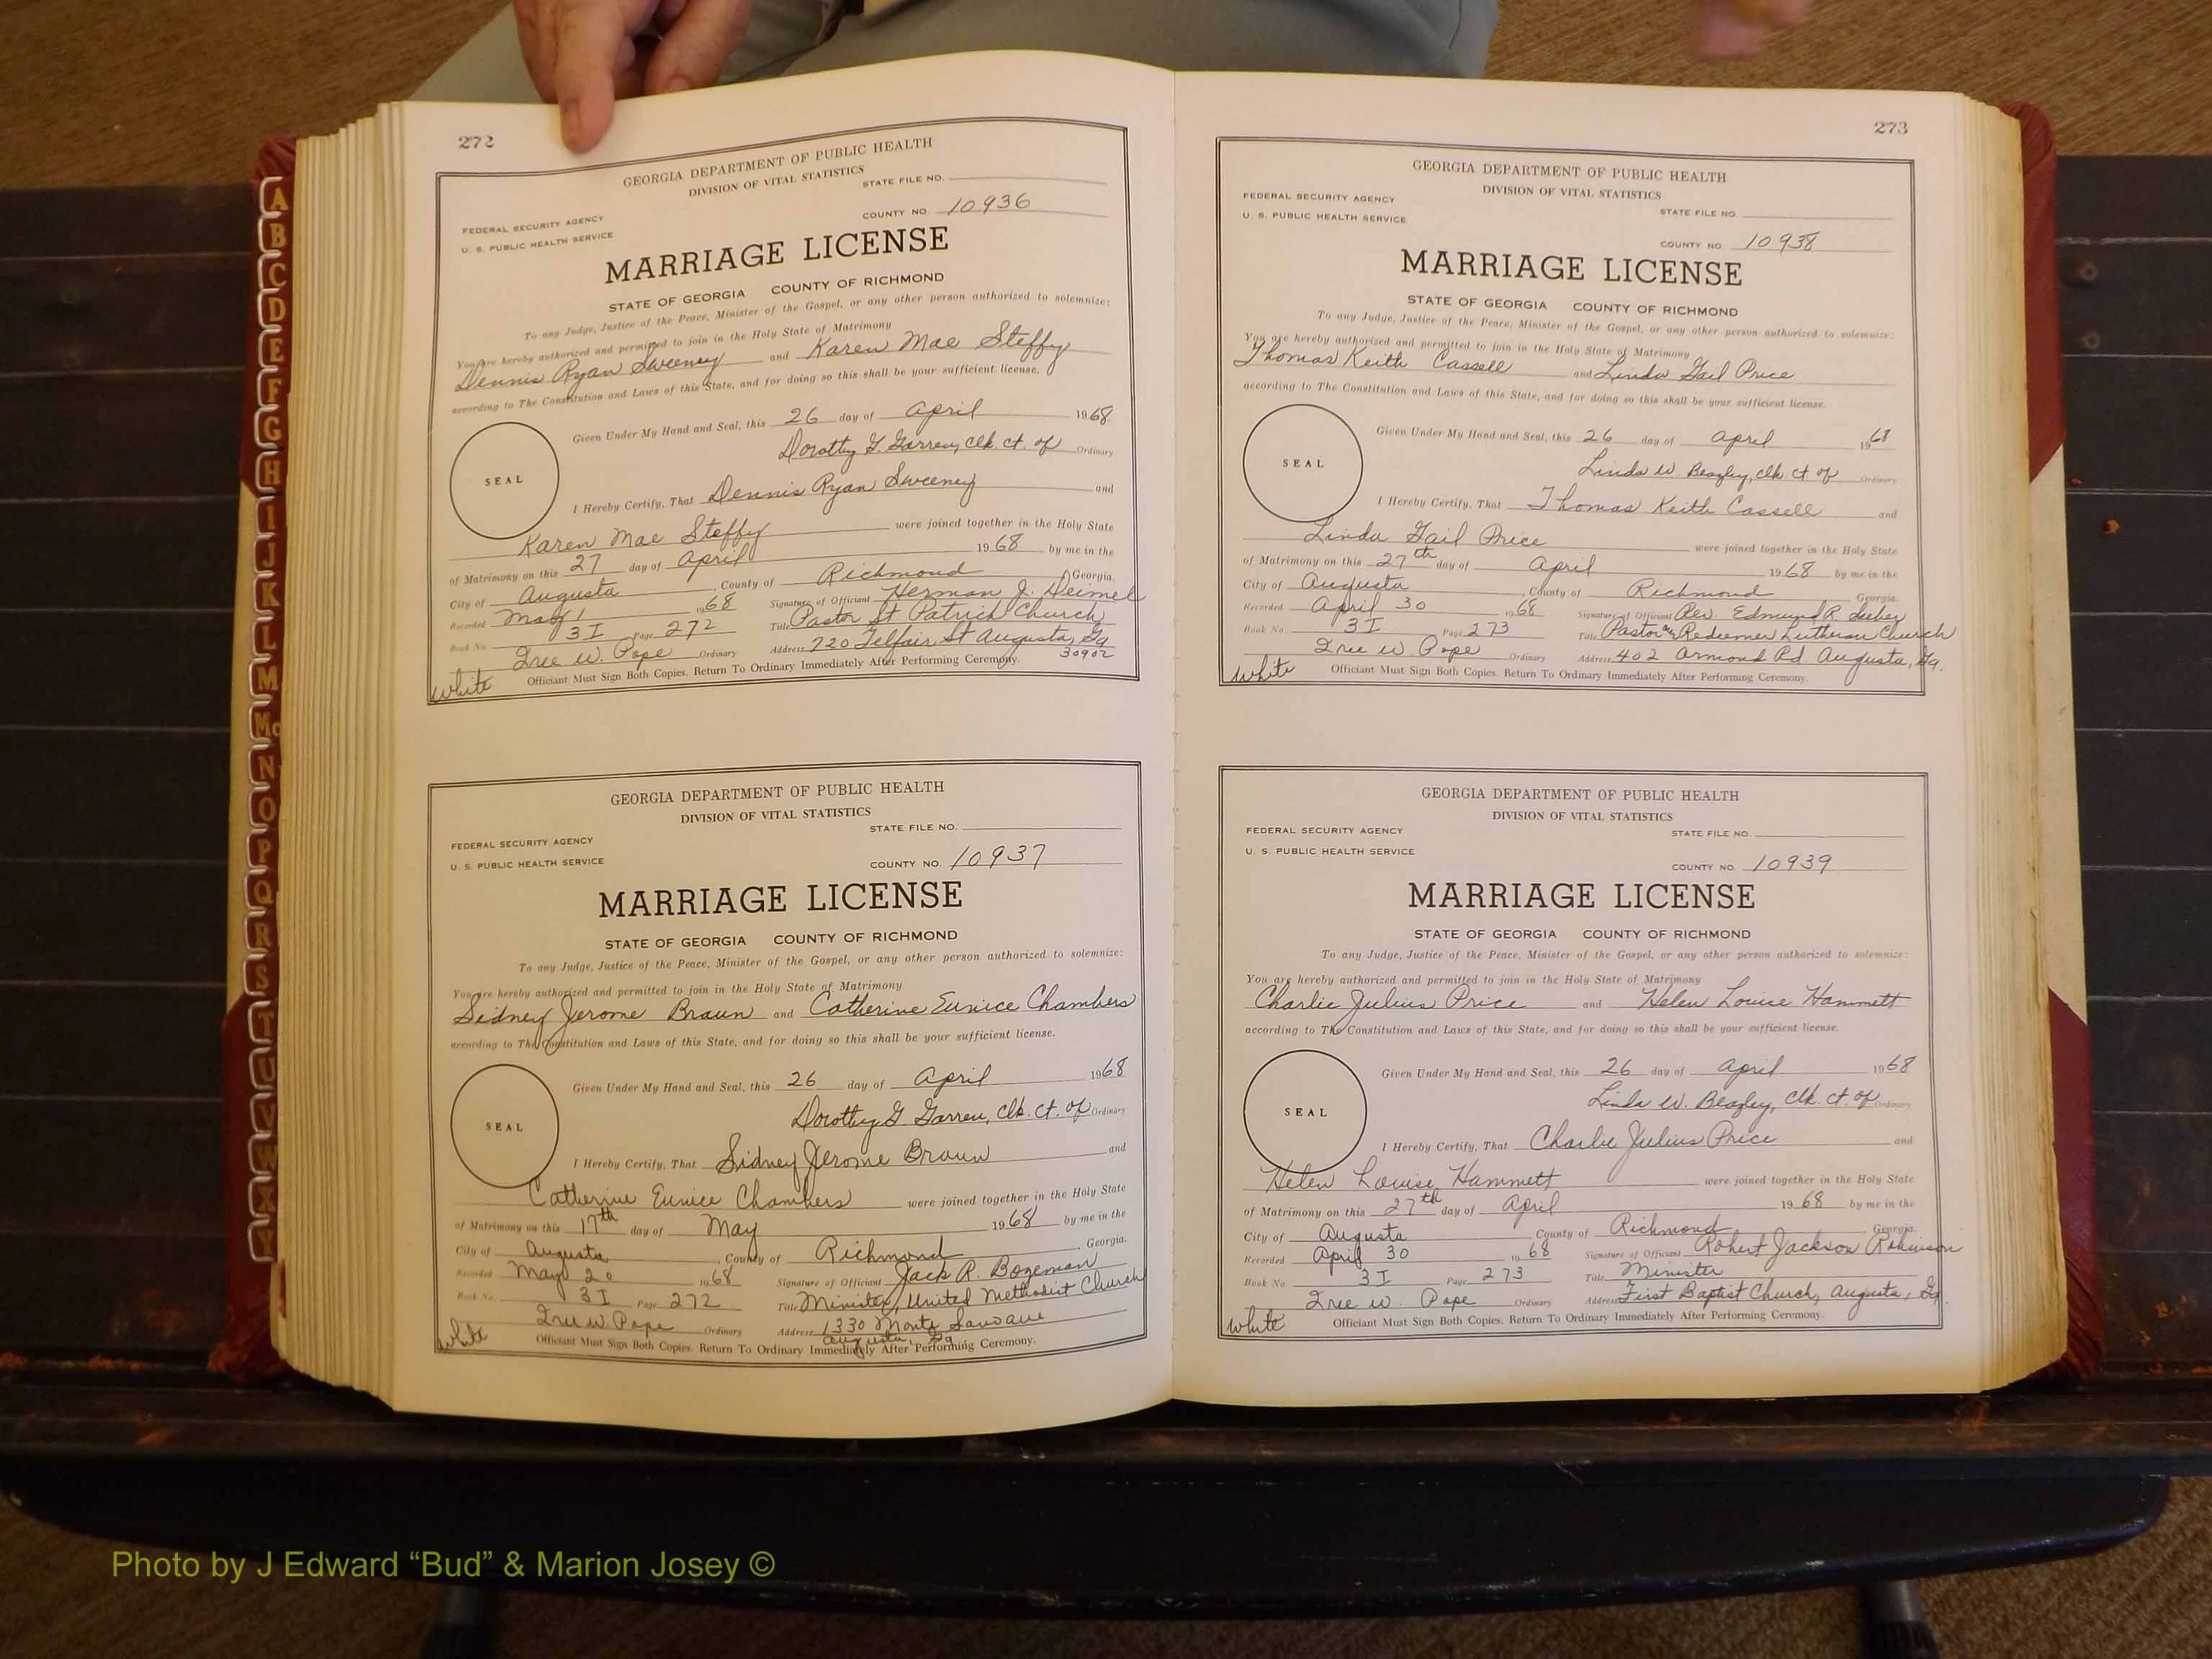 272
GEORGIA DEPARTMENT OF PUBLIC HEALTH
DIVISION OF VITAL STATISTICS
STATE FILE NO.
FEDERAL SECURITY AGENCY
COUNTY NO. 10936
U. S. PUBLIC HEALTH SERVICE
MARRIAGE LICENSE
STATE OF GEORGIA COUNTY OF RICHMOND
To any Judge, Justice of the Peace, Minister of the Gospel, or any other person authorized to solemnize:
You are hereby authorized and permitted to join in the Holy State of Matrimony
Dennis Ryan Sweeney and Karen Mae Steffy
according to The Constitution and Laws of this State, and for doing so this shall be your sufficient license.
Given Under My Hand and Seal, this 26 day of April 1968
Dorothy G. Garren, Clk. Ct. of Ordinary
SEAL
I Hereby Certify, That Dennis Ryan Sweeney and
Karen Mae Steffy were joined together in the Holy State
of Matrimony on this 27 day of April 1968 by me in the
City of Augusta, County of Richmond, Georgia.
Recorded May 1 1968 Signature of Officiant Herman J. Deimel
Book No. 3I Page 272 Title Pastor St Patrick Church
W. Pope Ordinary Address 720 Telfair St Augusta, Ga
30902
white Officiant Must Sign Both Copies. Return To Ordinary Immediately After Performing Ceremony.
GEORGIA DEPARTMENT OF PUBLIC HEALTH
DIVISION OF VITAL STATISTICS
STATE FILE NO.
FEDERAL SECURITY AGENCY
COUNTY NO. 10937
U. S. PUBLIC HEALTH SERVICE
MARRIAGE LICENSE
STATE OF GEORGIA COUNTY OF RICHMOND
To any Judge, Justice of the Peace, Minister of the Gospel, or any other person authorized to solemnize:
You are hereby authorized and permitted to join in the Holy State of Matrimony
Sidney Jerome Braun and Catherine Eunice Chambers
according to The Constitution and Laws of this State, and for doing so this shall be your sufficient license.
Given Under My Hand and Seal, this 26 day of April 1968
Dorothy G. Garren, Clk. Ct. of Ordinary
SEAL
I Hereby Certify, That Sidney Jerome Braun and
Catherine Eunice Chambers were joined together in the Holy State
of Matrimony on this 17th day of May 1968 by me in the
City of Augusta, County of Richmond, Georgia.
Recorded May 20 1968 Signature of Officiant Jack R. Bozeman
Book No. 3I Page 272 Title Minister, United Methodist Church
W. Pope Ordinary Address 1330 Monte Sano ave
Augusta, Ga
white Officiant Must Sign Both Copies. Return To Ordinary Immediately After Performing Ceremony.
273
GEORGIA DEPARTMENT OF PUBLIC HEALTH
DIVISION OF VITAL STATISTICS
FEDERAL SECURITY AGENCY
STATE FILE NO.
U. S. PUBLIC HEALTH SERVICE
COUNTY NO. 10938
MARRIAGE LICENSE
STATE OF GEORGIA COUNTY OF RICHMOND
To any Judge, Justice of the Peace, Minister of the Gospel, or any other person authorized to solemnize:
You are hereby authorized and permitted to join in the Holy State of Matrimony
Thomas Keith Cassell and Linda Gail Price
according to The Constitution and Laws of this State, and for doing so this shall be your sufficient license.
Given Under My Hand and Seal, this 26 day of April 1968
Linda W. Beazley, Clk. Ct. of Ordinary
SEAL
I Hereby Certify, That Thomas Keith Cassell and
Linda Gail Price were joined together in the Holy State
of Matrimony on this 27th day of April 1968 by me in the
City of Augusta, County of Richmond, Georgia.
Recorded April 30 1968 Signature of Officiant Rev. Edmund R.
Book No. 3I Page 273 Title Pastor Redeemer Lutheran Church
W. Pope Ordinary Address 402 Armond Rd. Augusta, Ga.
white Officiant Must Sign Both Copies. Return To Ordinary Immediately After Performing Ceremony.
GEORGIA DEPARTMENT OF PUBLIC HEALTH
DIVISION OF VITAL STATISTICS
FEDERAL SECURITY AGENCY
STATE FILE NO.
U. S. PUBLIC HEALTH SERVICE
COUNTY NO. 10939
MARRIAGE LICENSE
STATE OF GEORGIA COUNTY OF RICHMOND
To any Judge, Justice of the Peace, Minister of the Gospel, or any other person authorized to solemnize:
You are hereby authorized and permitted to join in the Holy State of Matrimony
Charlie Julius Price and Helen Louise Hammett
according to The Constitution and Laws of this State, and for doing so this shall be your sufficient license.
Given Under My Hand and Seal, this 26 day of April 1968
Linda W. Beazley, Clk. Ct. of Ordinary
SEAL
I Hereby Certify, That Charlie Julius Price and
Helen Louise Hammett were joined together in the Holy State
of Matrimony on this 27th day of April 1968 by me in the
City of Augusta, County of Richmond, Georgia.
Recorded April 30 1968 Signature of Officiant Robert Jackson Robinson
Book No. 3I Page 273 Title Minister
W. Pope Ordinary Address First Baptist Church, Augusta, Ga.
white Officiant Must Sign Both Copies. Return To Ordinary Immediately After Performing Ceremony.
A
B
C
D
E
F
G
H
I
J
K
L
M
Mc
N
O
P
Q
R
S
T
U
V
W
X
Y
Photo by J Edward “Bud” & Marion Josey ©